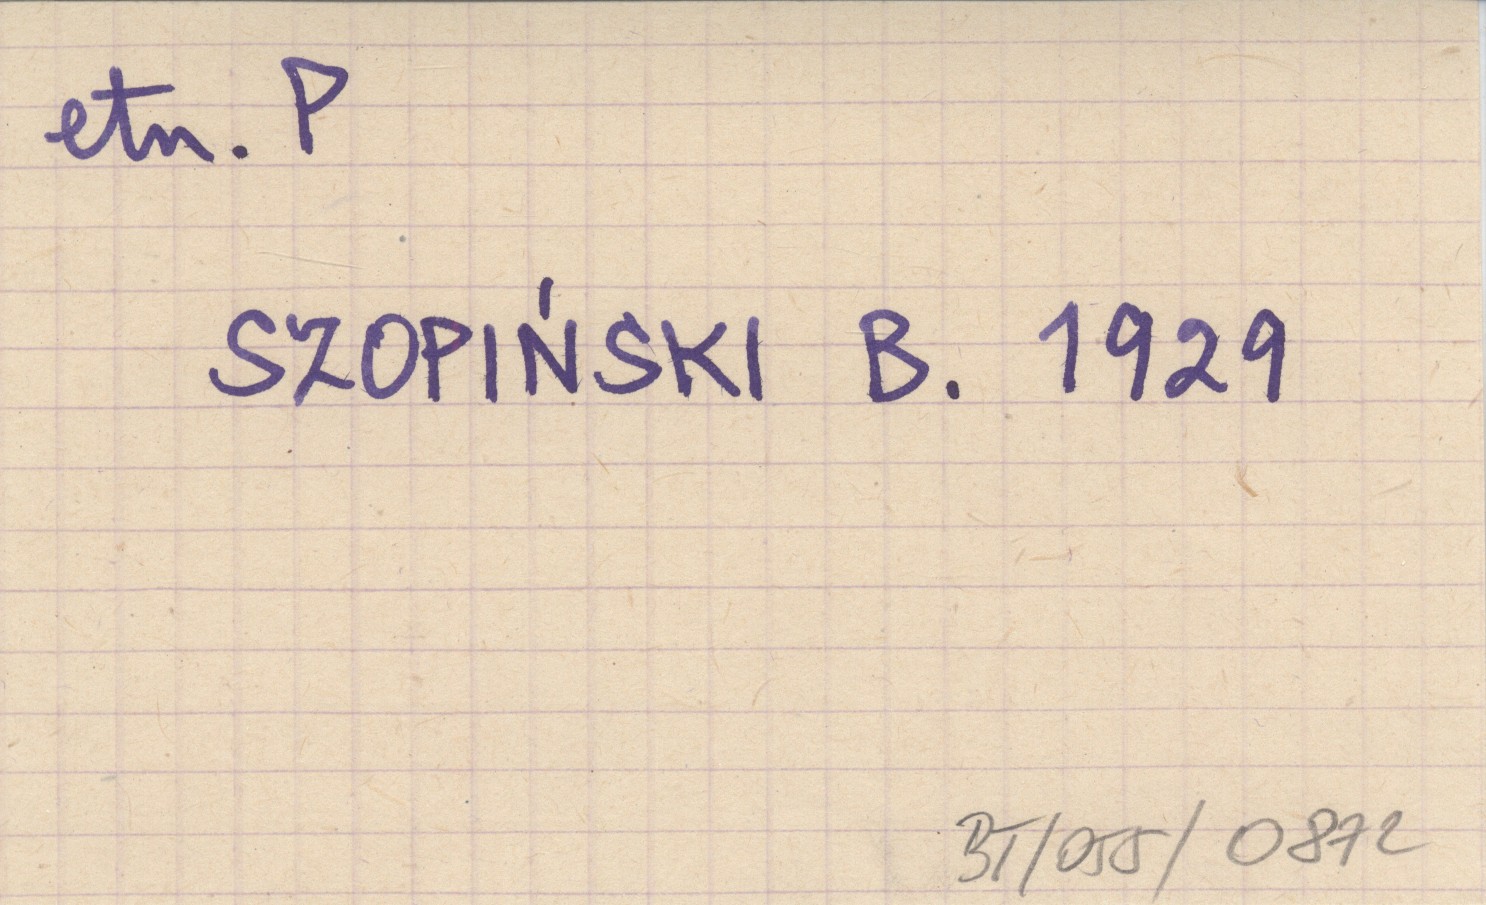 etn. P
SZOPIŃSKI B. 1929
BT/055/0872